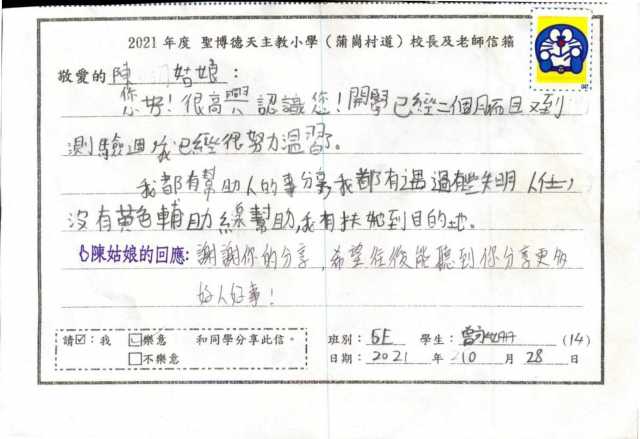 2021 年度 聖博德天主教小學（蒲崗村道）校長及老師信箱
敬愛的 陳 姑娘：
您好！很高興認識您！開學已經二個月而且又到
測驗週，我已經很努力溫習了。
我都有幫助人的事分享，我都有遇過有些失明人仕，
沒有黃色輔助線幫助，我有扶她到目的地。
陳姑娘的回應：謝謝你的分享，希望往後能聽到你分享更多
好人好事！
請☑：我 ☑樂意 和同學分享此信。
□不樂意
班別：5E 學生：曾 (14)
日期：2021 年 10 月 28 日